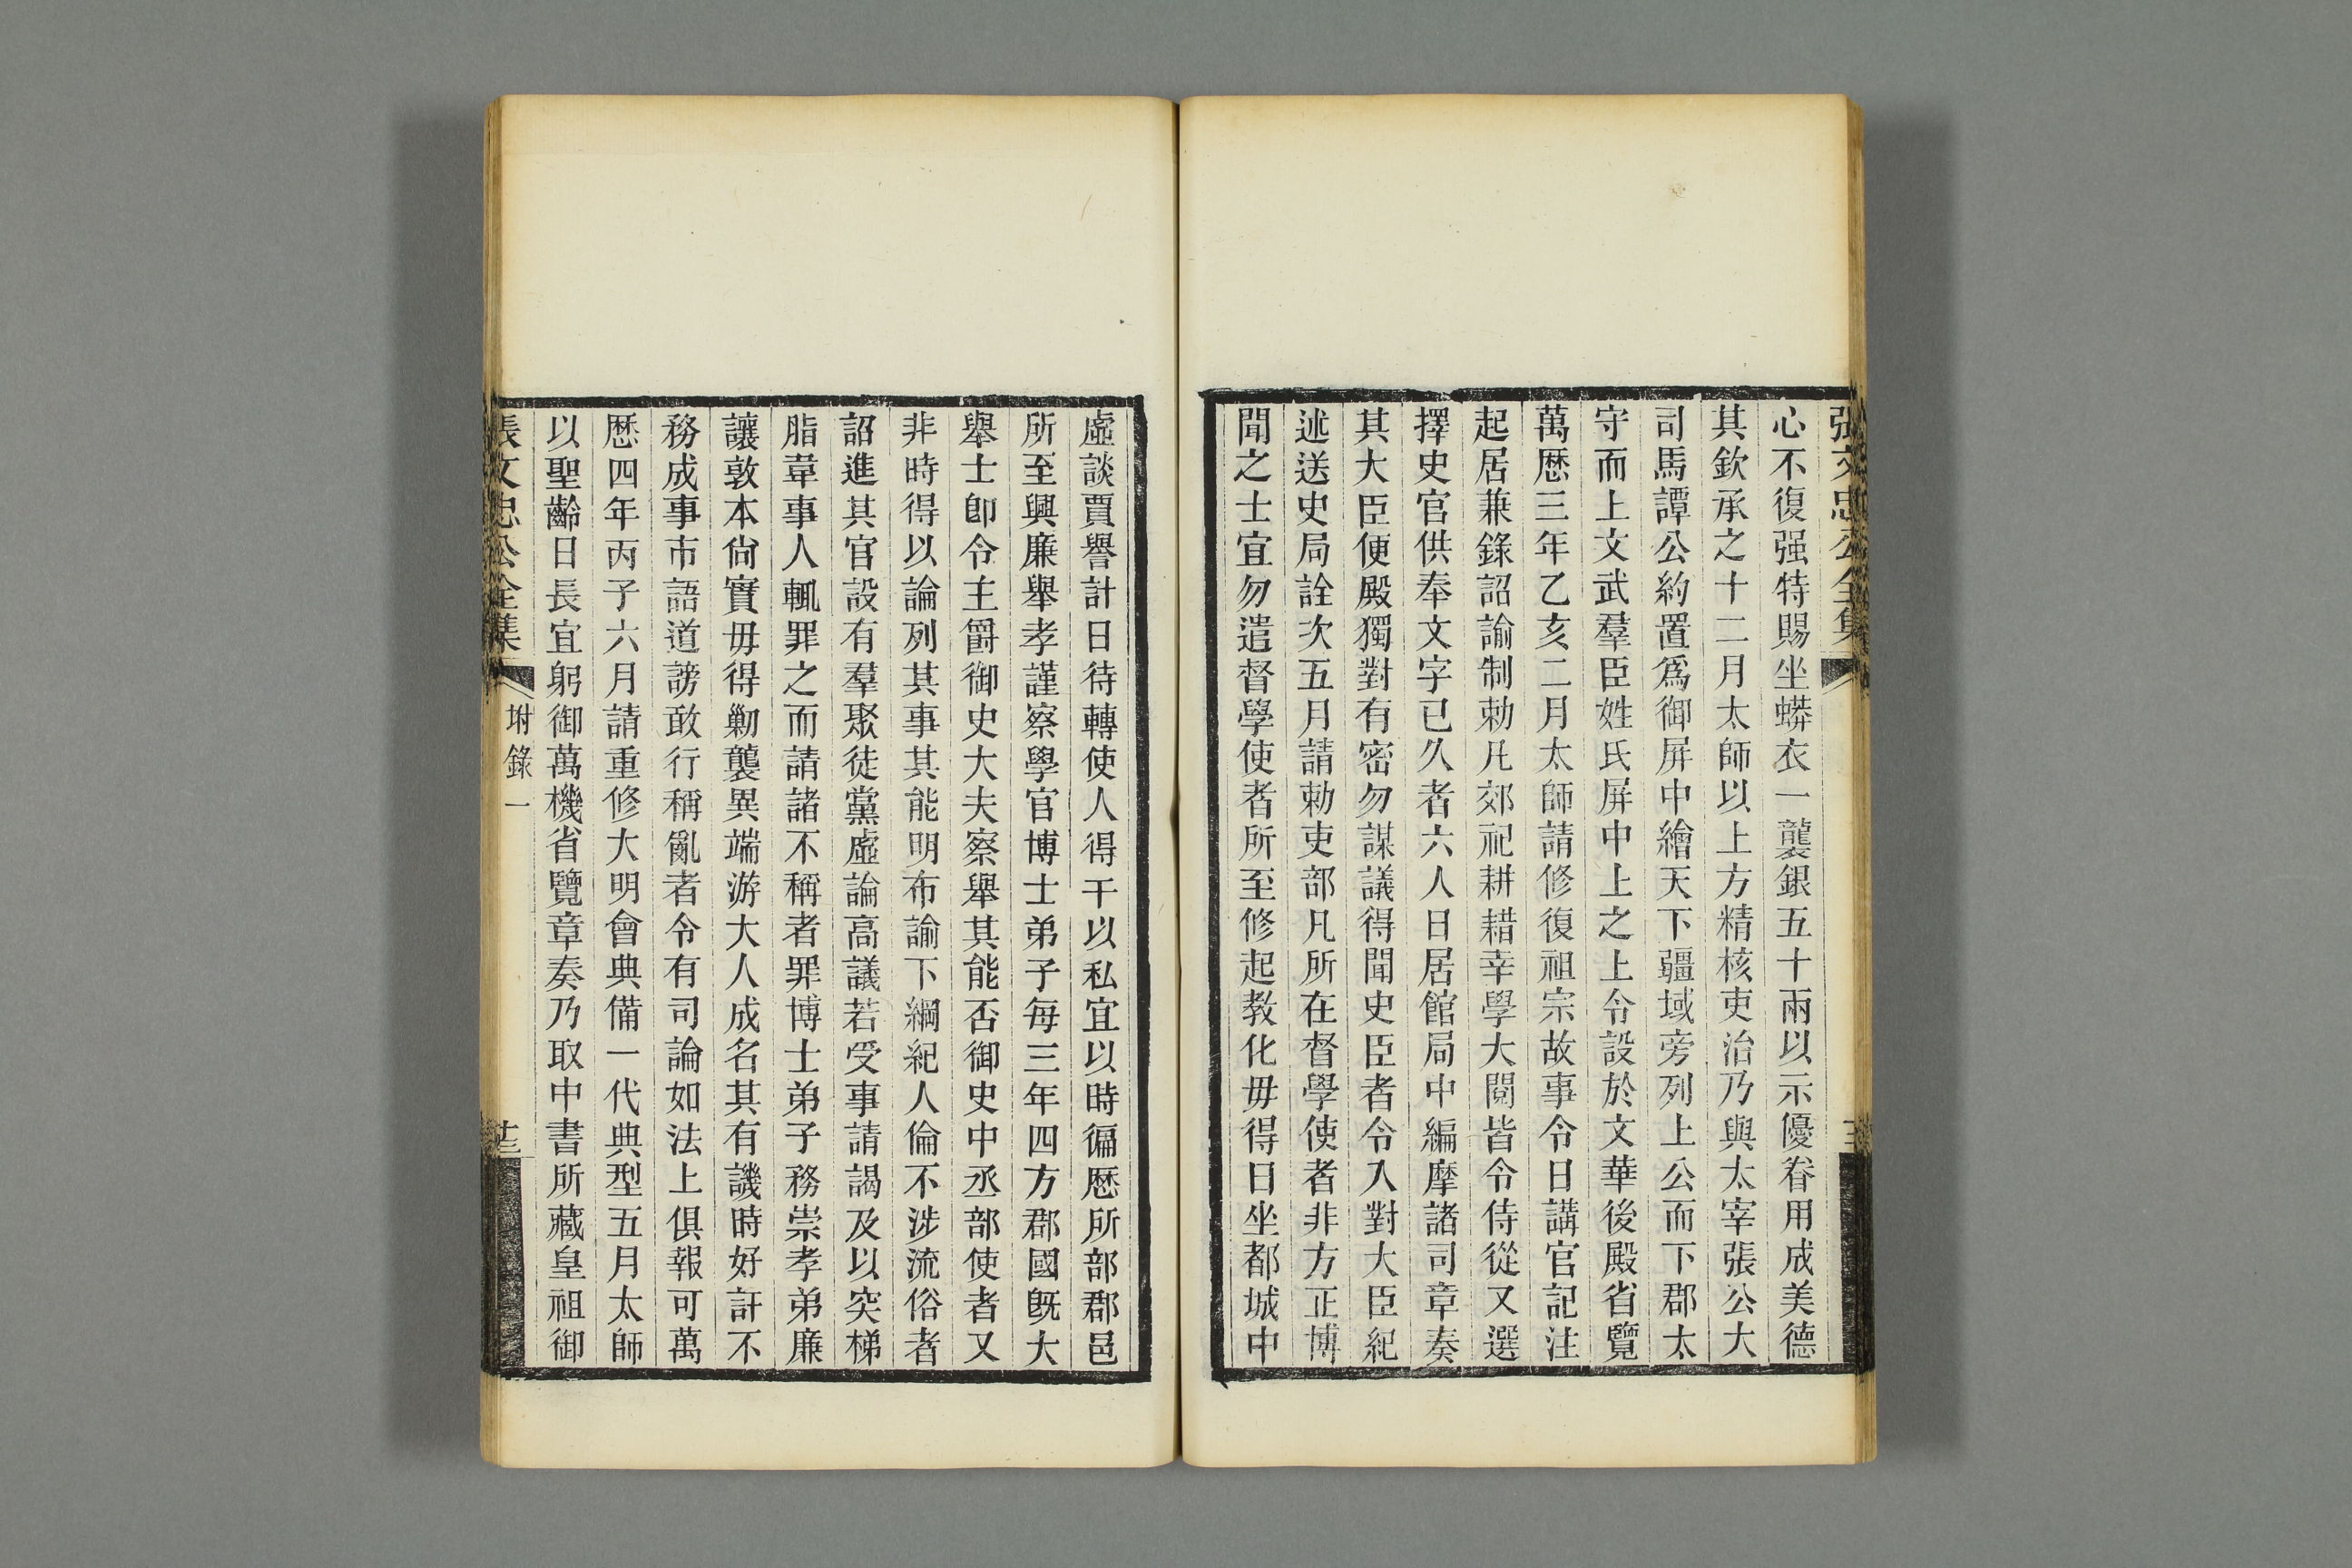 張文忠公全集
心不復强特賜坐蟒衣一襲銀五十兩以示優眷用成美德
其欽承之十二月太師以上方精核吏治乃與太宰張公大
司馬譚公約置爲御屏中繪天下疆域旁列上公而下郡太
守而上文武羣臣姓氏屏中上之上令設於文華後殿省覽
萬歷三年乙亥二月太師請修復祖宗故事令日講官記注
起居兼錄詔諭制勅凡郊祀耕耤幸學大閱皆令侍從又選
擇史官供奉文字已久者六人日居館局中編摩諸司章奏
其大臣便殿獨對有密勿謀議得聞史臣者令入對大臣紀
述送史局詮次五月請勅吏部凡所在督學使者非方正博
聞之士宜勿遣督學使者所至修起教化毋得日坐都城中
虛談賈譽計日待轉使人得干以私宜以時徧歷所部郡邑
所至興廉舉孝謹察學官博士弟子每三年四方郡國旣大
舉士卽令主爵御史大夫察舉其能否御史中丞部使者又
非時得以論列其事其能明布諭下綱紀人倫不涉流俗者
詔進其官設有羣聚徒黨虛論高議若受事請謁及以突梯
脂韋事人輒罪之而請諸不稱者罪博士弟子務崇孝弟廉
讓敦本尙實毋得勦襲異端游大人成名其有譏時好訐不
務成事市語道謗敢行稱亂者令有司論如法上俱報可萬
歷四年丙子六月請重修大明會典備一代典型五月太師
以聖齡日長宜躬御萬機省覽章奏乃取中書所藏皇祖御
張文忠公全集
附錄一